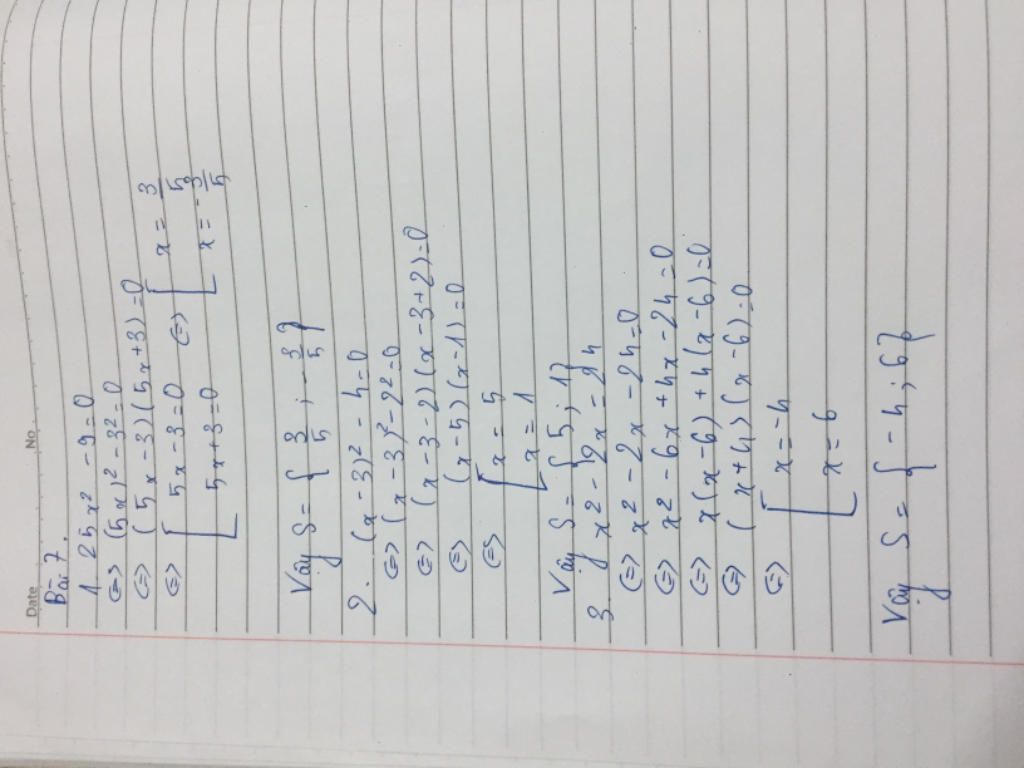 Date No.
Bài 7.
1. 25x² - 9 = 0
<=> (5x)² - 3² = 0
<=> (5x - 3)(5x + 3) = 0
<=> [ 5x - 3 = 0 <=> [ x = 3/5
5x + 3 = 0 x = -3/5
Vậy S = { 3/5 ; -3/5 }
2. (x - 3)² - 4 = 0
<=> (x - 3)² - 2² = 0
<=> (x - 3 - 2)(x - 3 + 2) = 0
<=> (x - 5)(x - 1) = 0
<=> [ x = 5
x = 1
Vậy S = { 5 ; 1 }
3. x² - 2x = 24
<=> x² - 2x - 24 = 0
<=> x² - 6x + 4x - 24 = 0
<=> x(x - 6) + 4(x - 6) = 0
<=> (x + 4)(x - 6) = 0
<=> [ x = -4
x = 6
Vậy S = { -4 ; 6 }